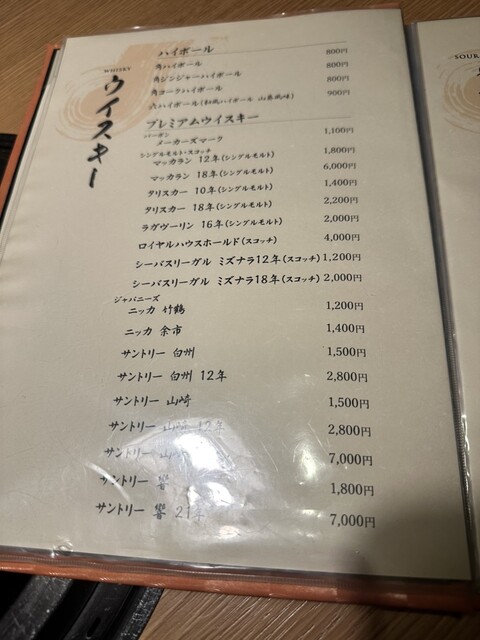 WHISKY
ウイスキー
ハイボール
角ハイボール 800円
角ジンジャーハイボール 800円
角コークハイボール 800円
ハイボール(和風ハイボール 山椒風味) 900円
プレミアムウイスキー
バーボン
メーカーズマーク 1,100円
シングルモルト・スコッチ
マッカラン 12年(シングルモルト) 1,800円
マッカラン 18年(シングルモルト) 6,000円
タリスカー 10年(シングルモルト) 1,400円
タリスカー 18年(シングルモルト) 2,200円
ラガヴーリン 16年(シングルモルト) 2,000円
ロイヤルハウスホールド(スコッチ) 4,000円
シーバスリーガル ミズナラ12年(スコッチ) 1,200円
シーバスリーガル ミズナラ18年(スコッチ) 2,000円
ジャパニーズ
ニッカ 竹鶴 1,200円
ニッカ 余市 1,400円
サントリー 白州 1,500円
サントリー 白州 12年 2,800円
サントリー 山崎 1,500円
サントリー 山崎 12年 2,800円
サントリー 山崎 7,000円
サントリー 響 1,800円
サントリー 響 21年 7,000円
SOUR